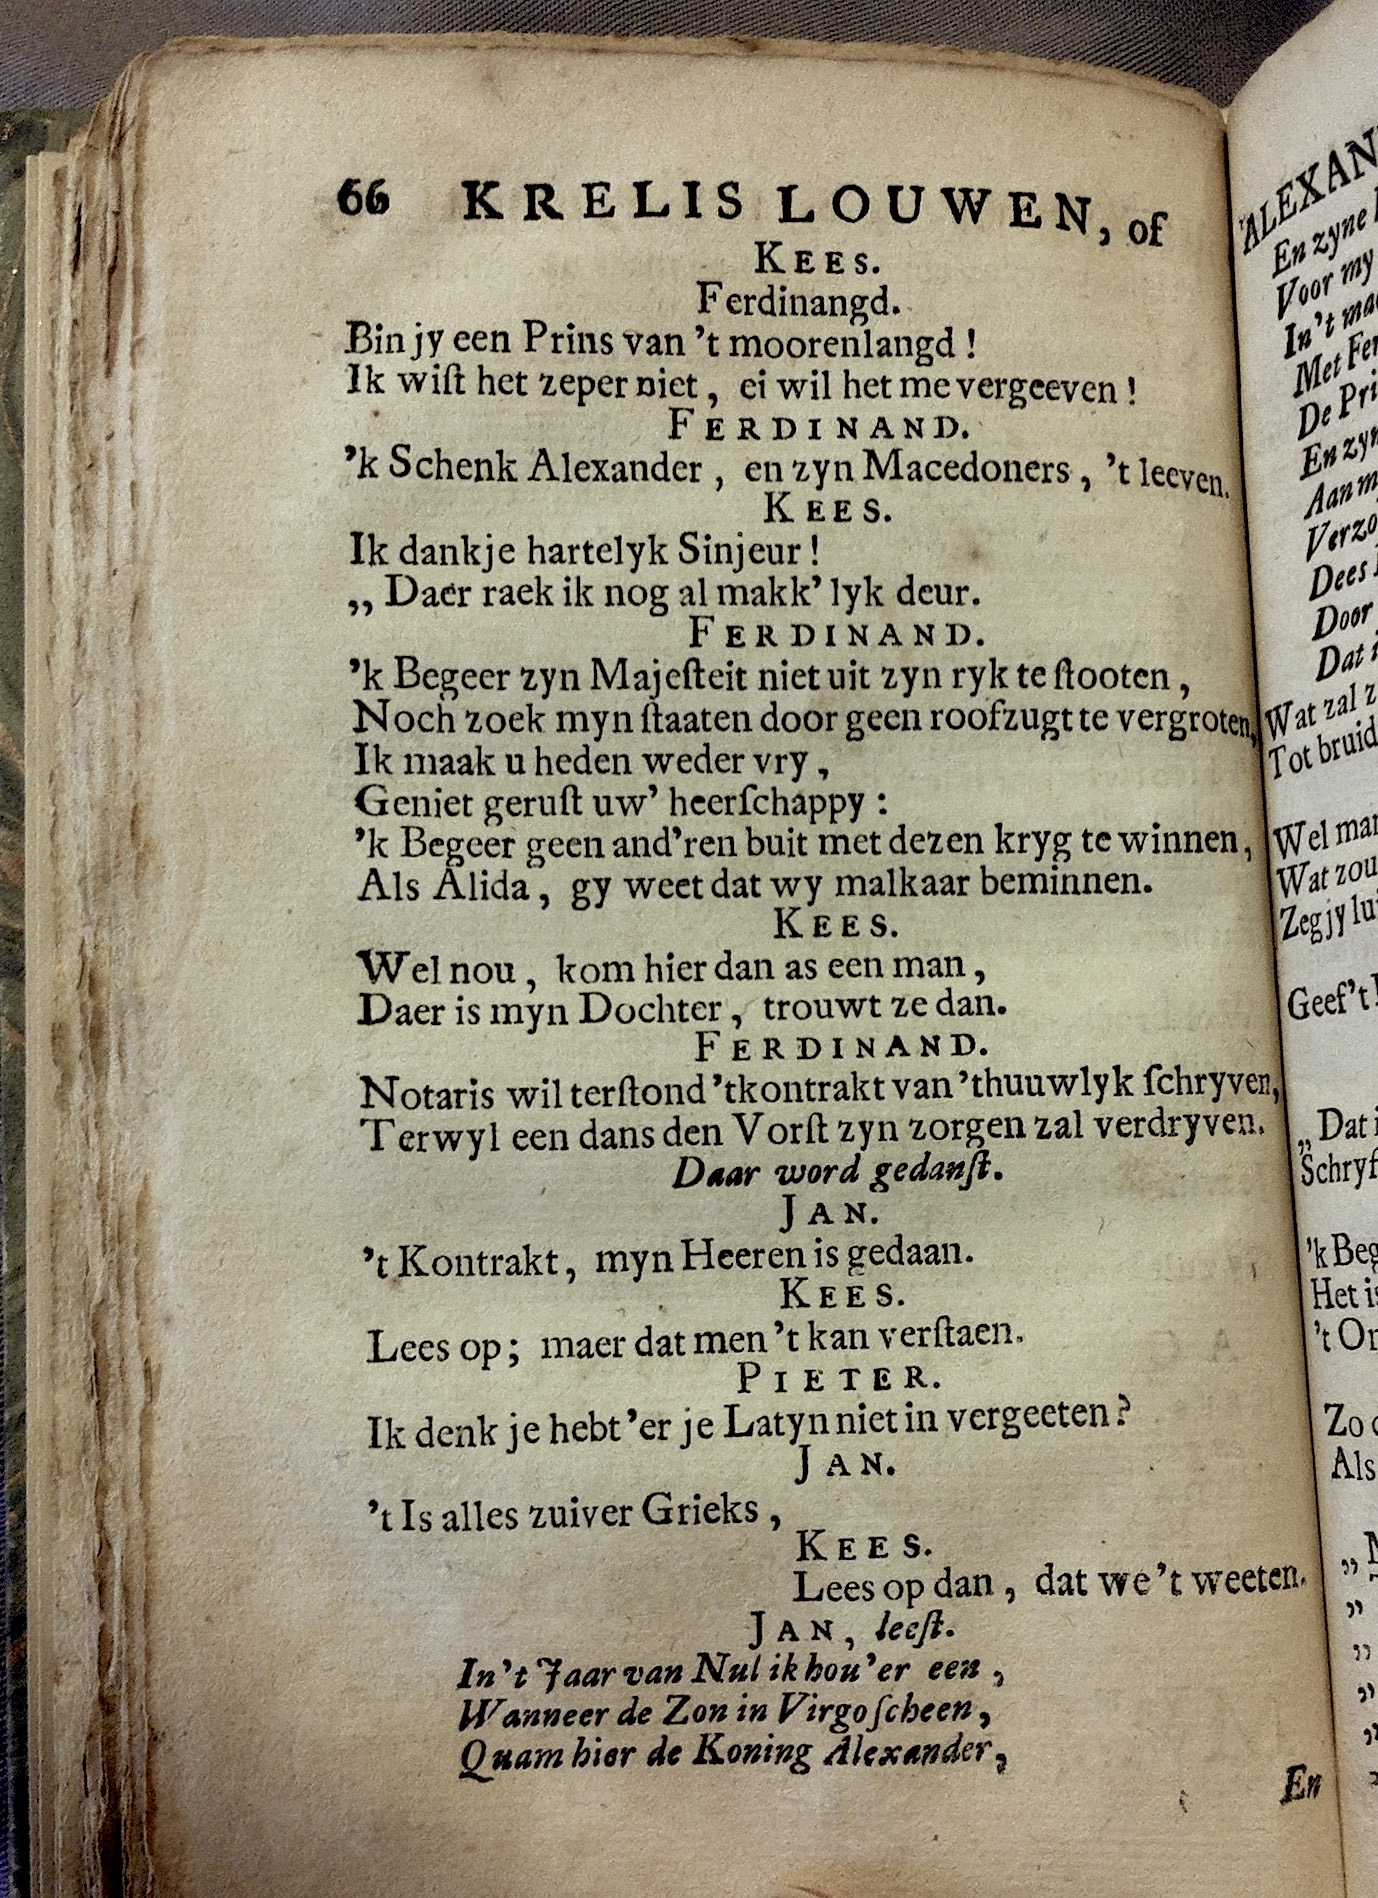 66 KRELIS LOUWEN, of
KEES.
Ferdinangd.
Bin jy een Prins van 't moorenlangd!
Ik wiſt het zeper niet, ei wil het me vergeeven!
FERDINAND.
'k Schenk Alexander, en zyn Macedoners, 't leeven.
KEES.
Ik dankje hartelyk Sinjeur!
,, Daer raek ik nog al makk'lyk deur.
FERDINAND.
'k Begeer zyn Majeſteit niet uit zyn ryk te ſtooten,
Noch zoek myn ſtaaten door geen roofzugt te vergroten,
Ik maak u heden weder vry,
Geniet geruſt uw' heerſchappy:
'k Begeer geen and'ren buit met dezen kryg te winnen,
Als Alida, gy weet dat wy malkaar beminnen.
KEES.
Wel nou, kom hier dan as een man,
Daer is myn Dochter, trouwt ze dan.
FERDINAND.
Notaris wil terſtond 'tkontrakt van 'thuuwlyk ſchryven,
Terwyl een dans den Vorſt zyn zorgen zal verdryven.
Daar word gedanſt.
JAN.
't Kontrakt, myn Heeren is gedaan.
KEES.
Lees op; maer dat men 't kan verſtaen.
PIETER.
Ik denk je hebt 'er je Latyn niet in vergeeten?
JAN.
't Is alles zuiver Grieks,
KEES.
Lees op dan, dat we 't weeten.
JAN, leeſt.
In 't Jaar van Nul ik hou 'er een,
Wanneer de Zon in Virgo ſcheen,
Quam hier de Koning Alexander,
En
ALEXAN
En zyne
Voor my
In 't
Met
De
En
Verzo
Dees
Door
Dat
Wat zal
Tot bruid
Wel
Wat zou
Zeg jy
Geef 't
,, Dat
Schryf
'k Beg
Het
't
Zo
Als